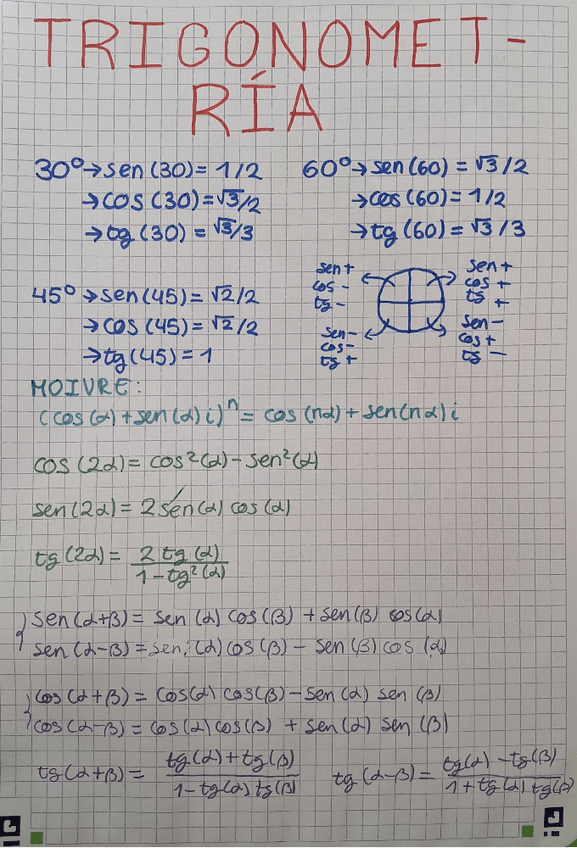 TRIGONOMET-
RÍA
30º→sen(30)= 1/2
→cos(30)=√3/2
→tg(30)= √3/3
60º→sen(60)=√3/2
→cos(60)= 1/2
→tg(60)=√3/3
45º→sen(45)=√2/2
→cos(45)=√2/2
→tg(45)=1
sen+
cos-
tg-
sen+
cos+
tg+
sen-
cos-
tg+
sen-
cos+
tg-
MOIVRE:
(cos(α)+sen(α)i)ⁿ= cos(nα)+sen(nα)i
cos(2α)= cos²(α)-sen²(α)
sen(2α)= 2sen(α) cos(α)
tg(2α)= 2tg(α)
1-tg²(α)
sen(α+β)= sen(α) cos(β)+sen(β) cos(α)
sen(α-β)=sen(α)cos(β)- sen(β)cos(α)
cos(α+β)= cos(α) cos(β)-sen(α) sen(β)
cos(α-β)= cos(α)cos(β) + sen(α) sen(β)
tg(α+β)= tg(α)+tg(β)
1-tg(α)tg(β)
tg(α-β)= tg(α)-tg(β)
1+tg(α)tg(β)